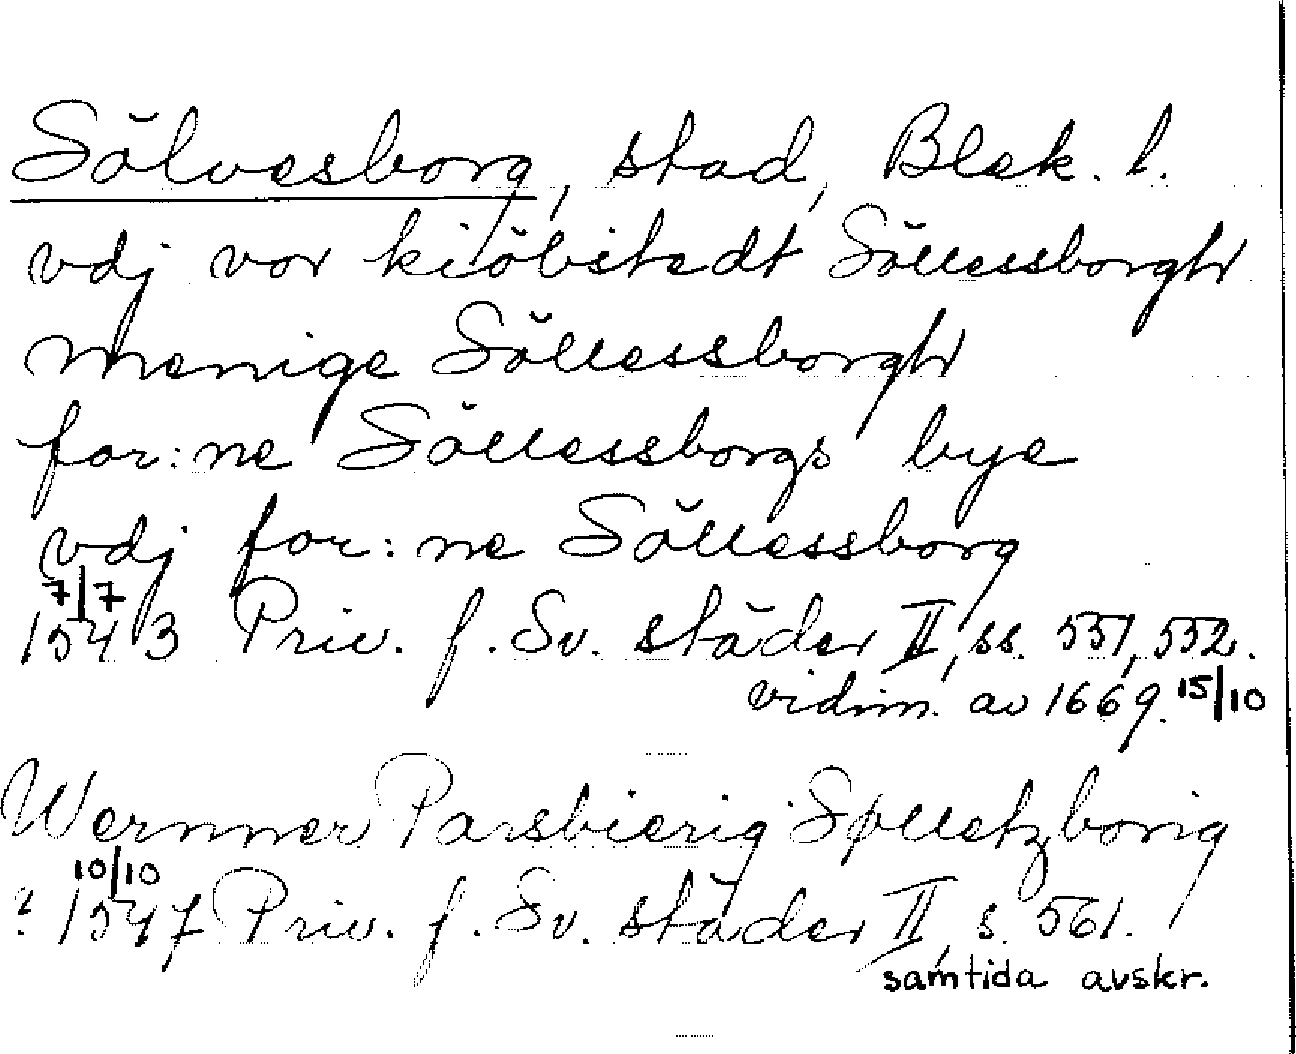 Sölvesborg, stad, Blek. l.
vdj vor kiöbstedt Söllessborgh
menige Söllessborgh
for:ne Söllessborgs bye
vdj for:ne Söllessborg
7/7
1543 Priv. f. Sv. städer II, ss. 551, 552.
vidim. av 1669. 15/10
Wernner Parsbierig Sølletzborig
10/10
? 1547 Priv. f. Sv. städer II, s. 561.
samtida avskr.